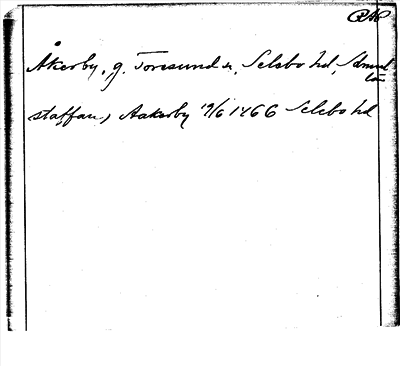 Åkerby, g. Toresund sn, Selebo hd, Södmanl
län
staffan, Aakerby 19/6 1466 Selebo hd